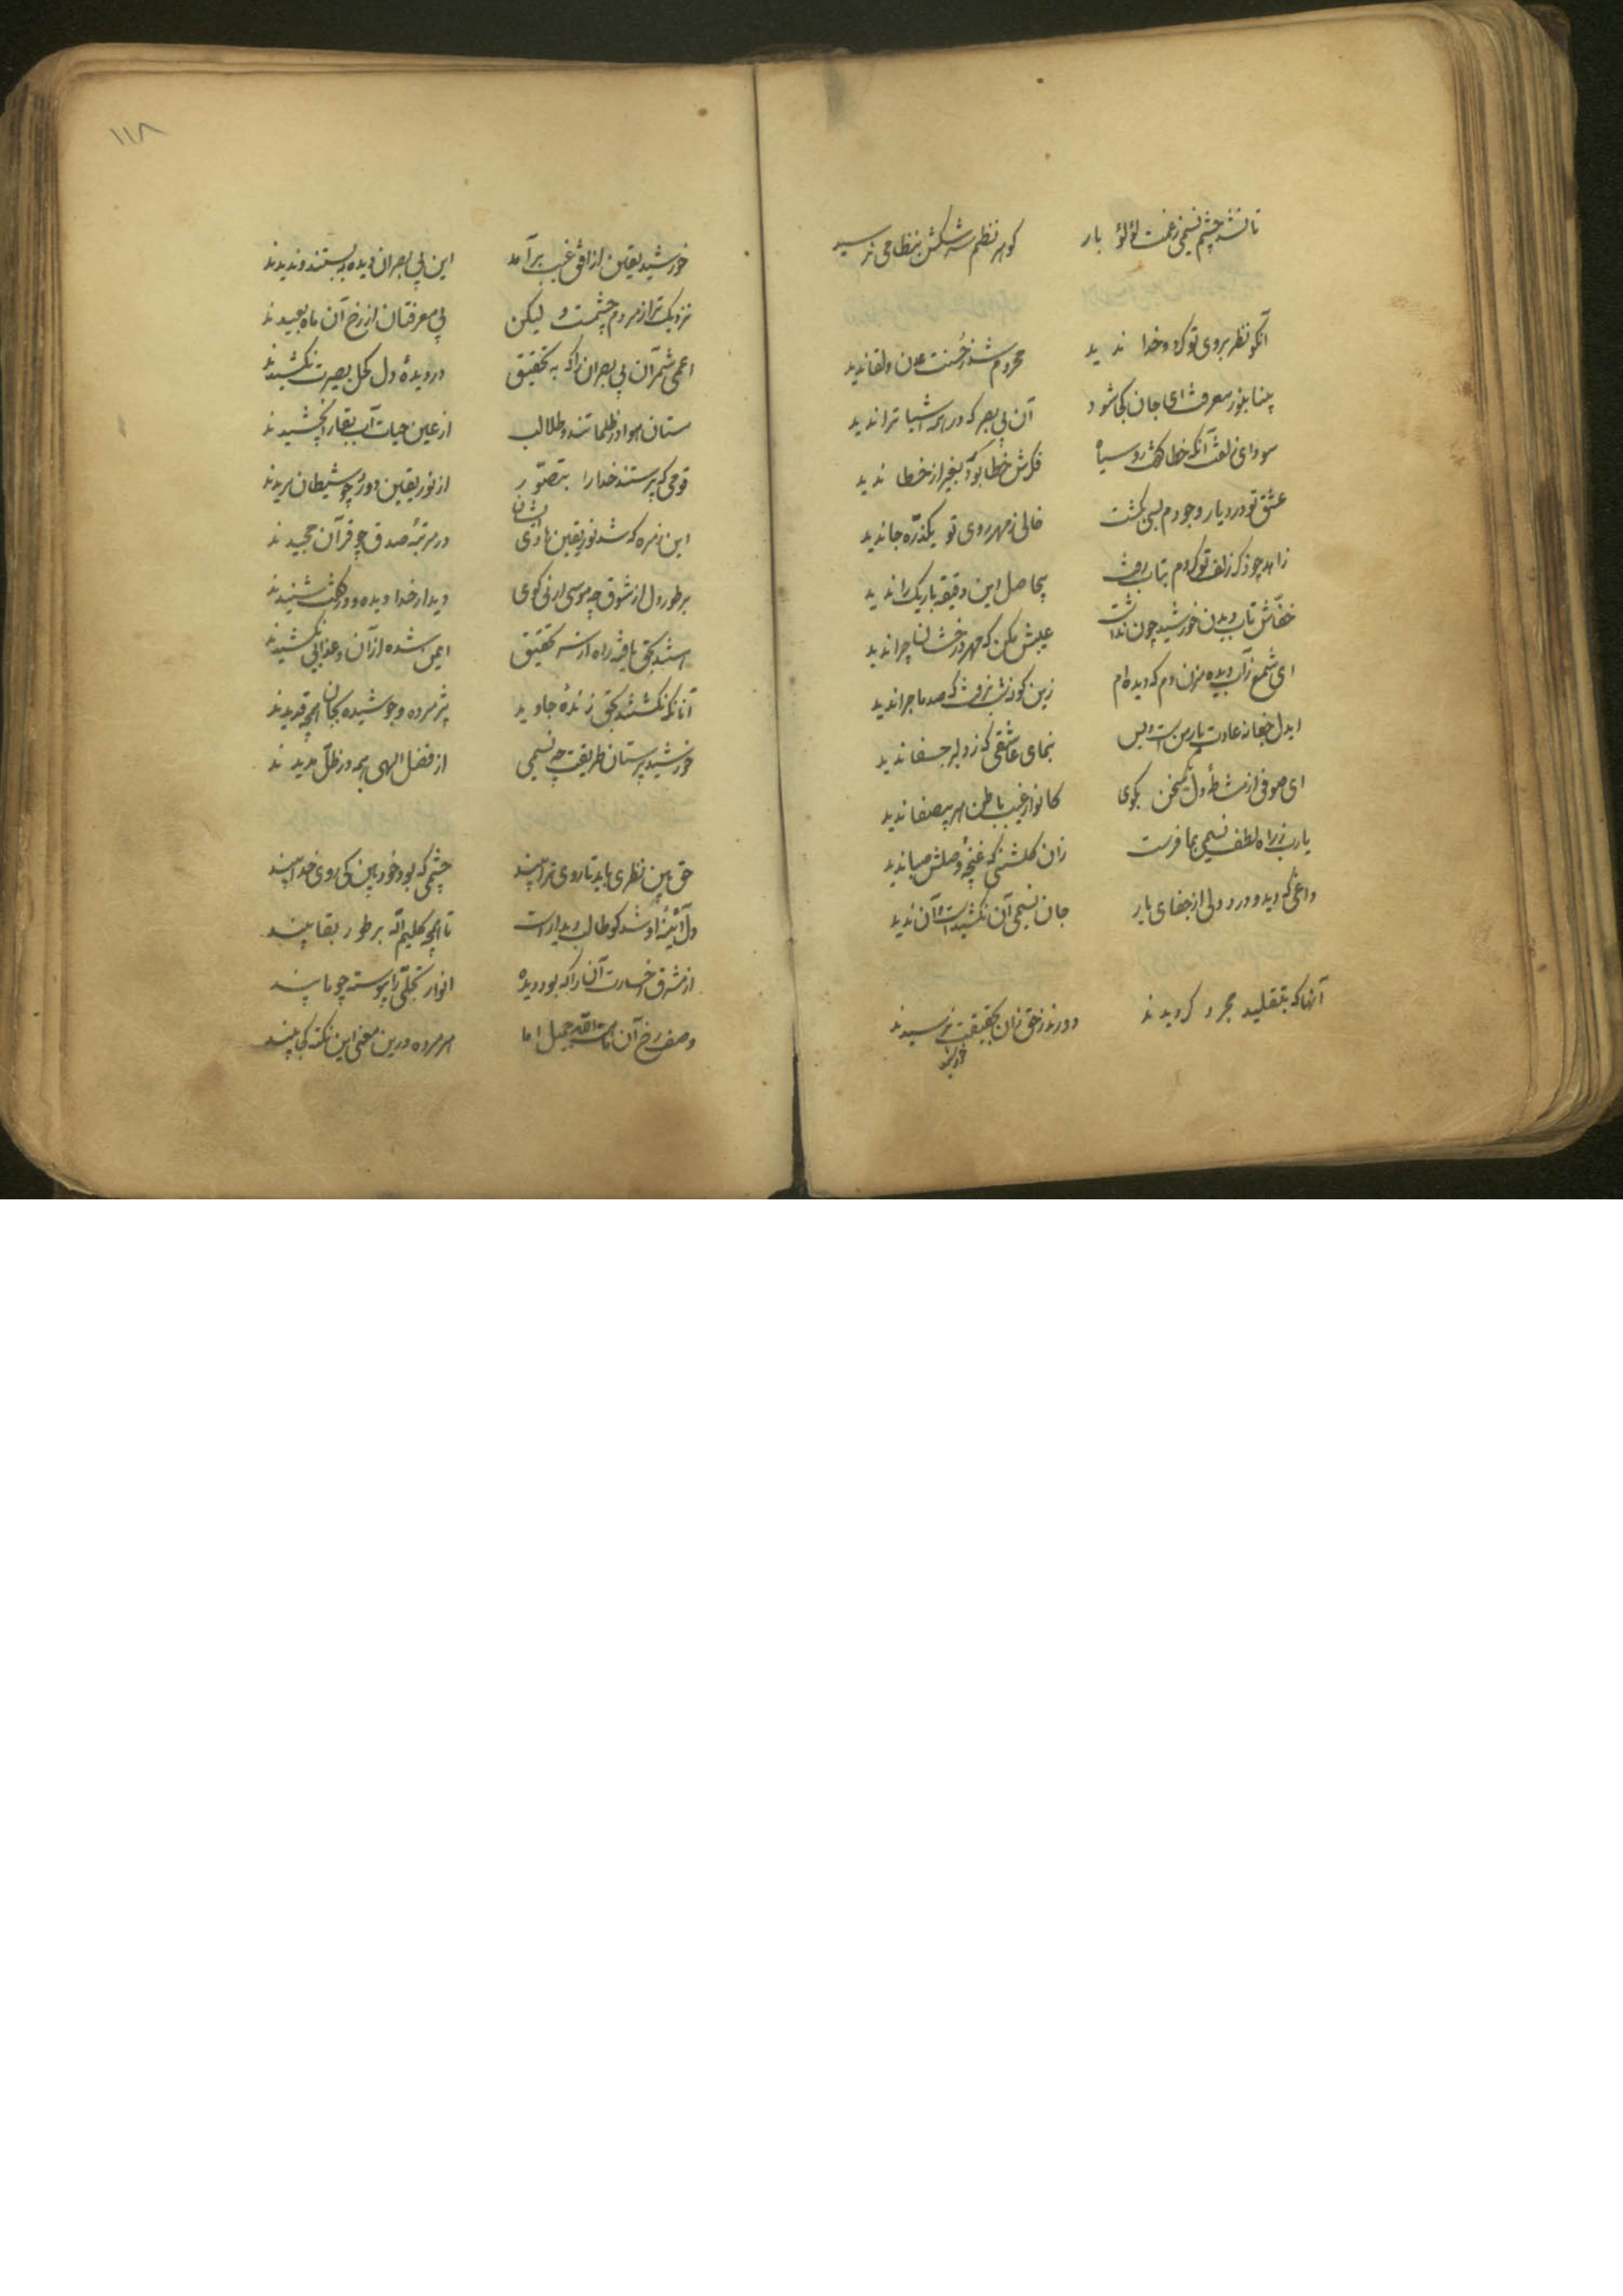 تا نشد چشم نسیمی ز غمت لؤلؤ بار گوهر نظم سرشکش بنظامی نرسید
آنکو نظر بروی تو کرد و خدا ندید محروم شد ز حسنت عدن و لقا ندید
بینا بنور معرفت ای جان کجا شود آن بی بصر که در همه اشیا ترا ندید
سودای زلفت آنکه خطا گفت رو سیاه فکرش خطا بود که بغیر از خطا ندید
عشق تو در دیار وجودم بسی بگشت خالی ز مهر روی تو یکذره جا ندید
زاهد چو ذکر زلف تو کردم بتاب رفت بیحاصل این دقیقه باریک را ندید
خفاش تاب دیدن خورشید چون نداشت عیبش مکن که مهر درخشان چرا ندید
ای شمع ز آب دیده مزن دم که دیده ام زین گونه شب نرفت که صد ماجرا ندید
ایدل جفا نه عادت یار منست و بس بنمای عاشقی که ز دلبر جفا ندید
ای صوفی از دل سخن مگوی کانوار غیب باطن هر بیصفا ندید
یارب ز راه لطف نسیمی بما فرست زان گلشنی که غنچه وصلش صبا ندید
داغی که دید و درد دلی از جفای یار جان نسیمی آن نکشیدست و آن ندید
آنها که بتقلید مجرد گرویدند دورند ز حق زان بحقیقت نرسیدند
خورشید
۱۱۸
خورشید یقین از افق غیب برآمد این بی بصران دیده ببستند و ندیدند
نزدیکتر از مردم چشمست و لیکن بی معرفتان از رخ آن ماه بعیدند
اعمی شمر آن بی بصران را که به تحقیق در دیده دل کحل بصیرت نکشیدند
مستان هوا در ظلماتند و طلالب از عین حیات آب بقا را نچشیدند
قومی که پرستند خدا را بتصور از نور یقین دور چو شیطان مریدند
این زمره که شد نور یقین هادی ایشان در مرتبه صدق چو قرآن مجیدند
بر طور دل از شوق چو موسی ارنی گوی دیدار خدا دیده و در گفت شنیدند
استند بحق یافته راه از سر تحقیق ایمن شده از آن و عذابی نکشیدند
آنانکه نگشتند بحق زنده جاوید پژمرده و جوشیده بجان همچو قدیدند
خورشید پرستان طریقت چو نسیمی از فضل الهی همه در ظل مدیدند
حق بین نظری باید تا روی ترا بیند چشمی که بود خودبین کی روی خدا بیند
دل آینه او شد کو طالب دیدارست تا همچو کلیم الله بر طور بقا بیند
از مشرق رخسارت آن را که بود دیده انوار تجلی را پیوسته چو ما بیند
وصف رخ آن مه الله جمیل اما هر مرده درین معنی این نکته کجا بیند